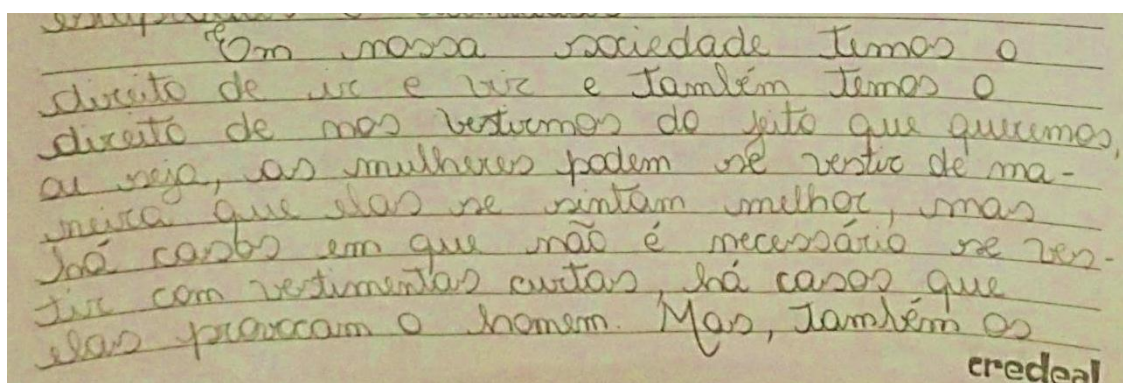 Em nossa sociedade temos o
direito de ir e vir e também temos o
direito de nos vestirmos do jeito que queremos,
ou seja, as mulheres podem se vestir de ma-
neira que elas se sintam melhor, mas
há casos em que não é necessário se ves-
tir com vestimentas curtas, há casos que
elas provocam o homem. Mas, também os
credeal